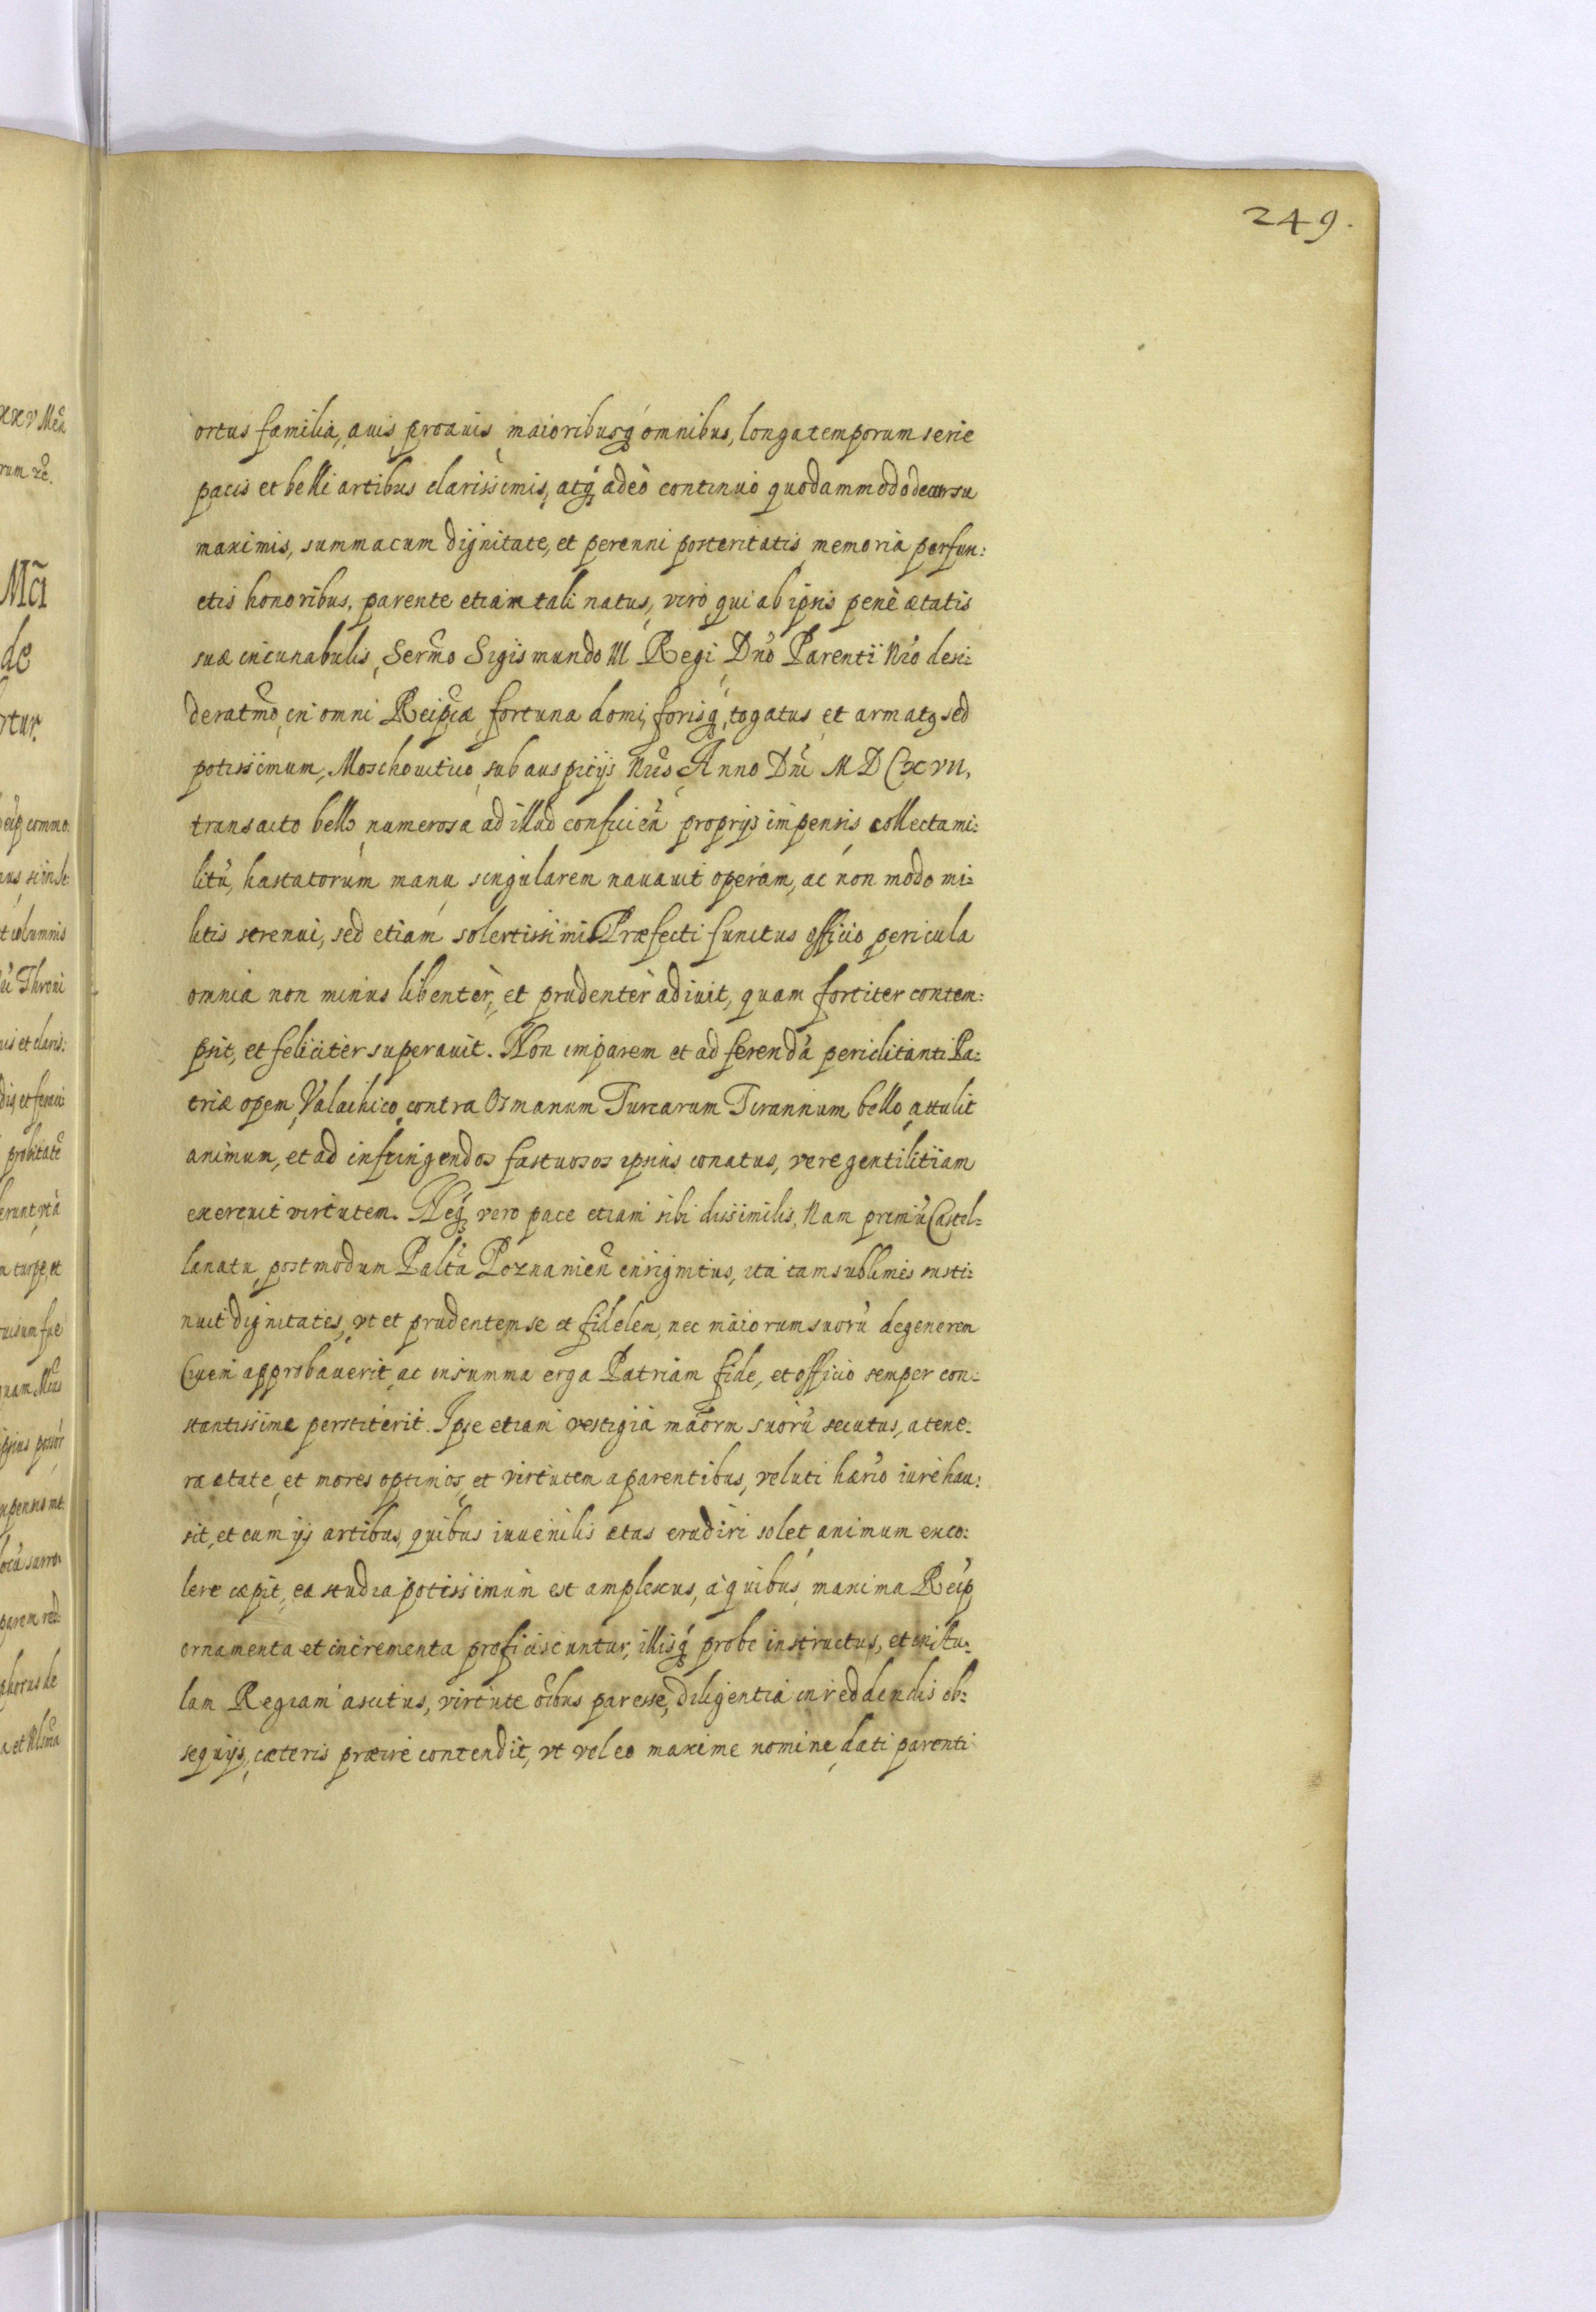 249.
ortus familia, auis proauis maioribusq́ omnibus, longa temporum serie
pacis et belli artibus clarissimis, atq́ adeò continuo quodammodo decursu
maximis, summa cum dignitate, et perenni posteritatis memoria perfun:
ctis honoribus. parente etiam tali natus, viro qui ab ipsis penè ætatis
suæ incunabulis, Sermo Sigismundo III Regi Dno Parenti Nro desi:
deratmo, in omni Reipcæ fortuna domi, forisq́, togatus et armatꝯ sed
potissimum, Moschouitico, sub auspicijs Nris Anno Dni MDCXVII,
transacto bello, numerosa ad illud conficień proprijs impensis collecta mi:
litū, hastatorum manu singularem nauauit operam, ac non modo mi:
litis strenui, sed etiam solertissimi Præfecti functus officio pericula
omnia non minus libentèr, et prudentèr adiuit, quam fortiter contem:
psit, et feliciter superauit. Non imparem et ad ferendā periclitanti Pa:
triæ opem, Valachico contra Osmanum Turcarum Tirannum bello attulit
animum, et ad infringendos fastuosos ipsius conatus, vere gentilitiam
exercuit virtutem. Neq́ vero pace etiam sibi dissimilis, Nam primū Castel:
lanatu, postmodum Paltu Poznanien insignitus, ita tam sublimes susti:
nuit dignitates, vt et prudentem se et fidelem, nec maiorum suorū degenerem
Ciuem approbauerit, ac in summa erga Patriam fide, et officio semper con:
stantissime perstiterit. Ipse etiam vestigia maorm suorū secutus, a tene:
ra ætate, et mores optimos, et virtutem a parentibus, veluti hærio iure hau:
sit, et cum ijs artibus, quibus iuuenilis ætas erudiri solet animum exco:
lere cæpit, ea studia potissimum est amplexus, a quibus maxima Reip
ornamenta et incrementa proficiscuntur, illisq́ probe instructus, et in Au:
lam Regiam ascitus, virtute oibus par esse, diligentia in reddendis ob:
sequijs, cæteris præire contendit, vt vel eo maxime nomine, dati parenti